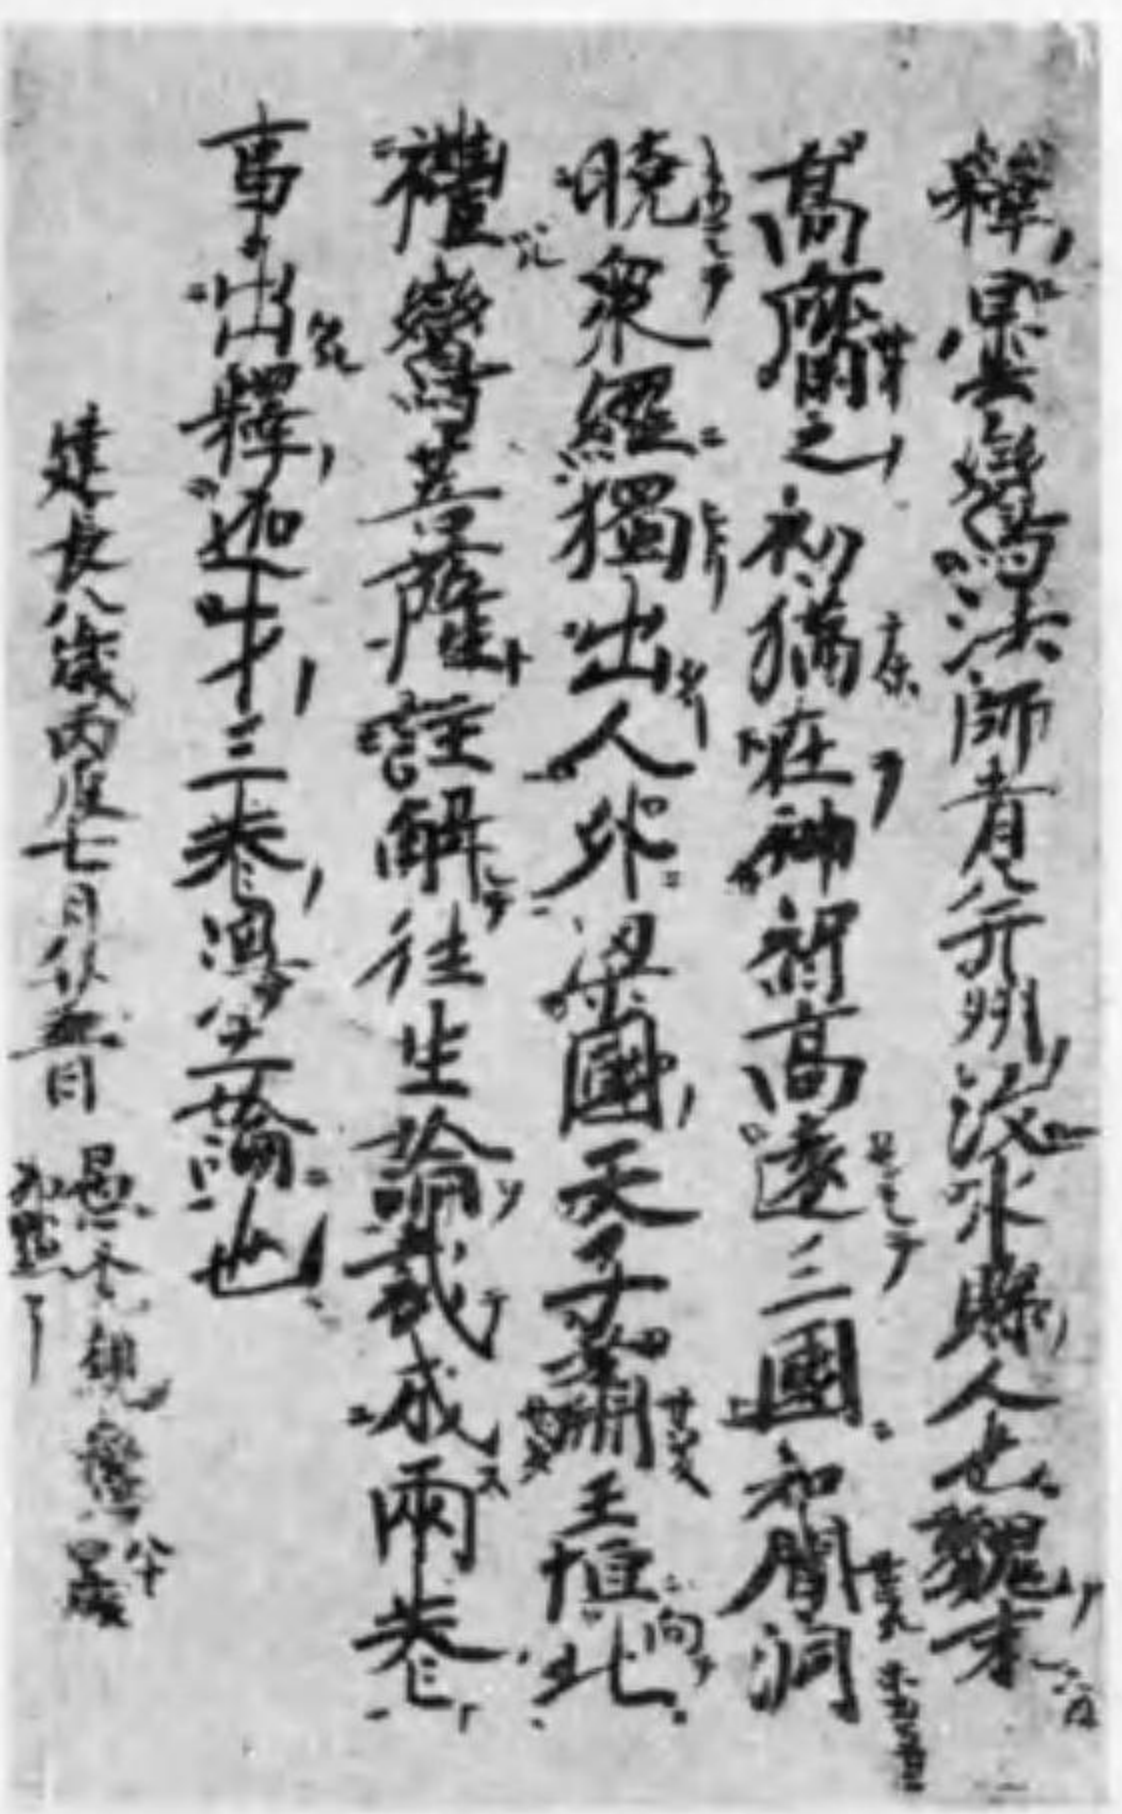 釋曇鸞法師者并州汶水縣人也魏末
高齊之初猶在神智高遠三國知聞洞
曉衆經獨出人外梁國天子蕭王恒北
禮鸞菩薩註解往生論裁成兩卷
事出釋迦才三卷淨土論也
建長八歳丙辰七月廿五日
愚禿親鸞八十四歳
加點了